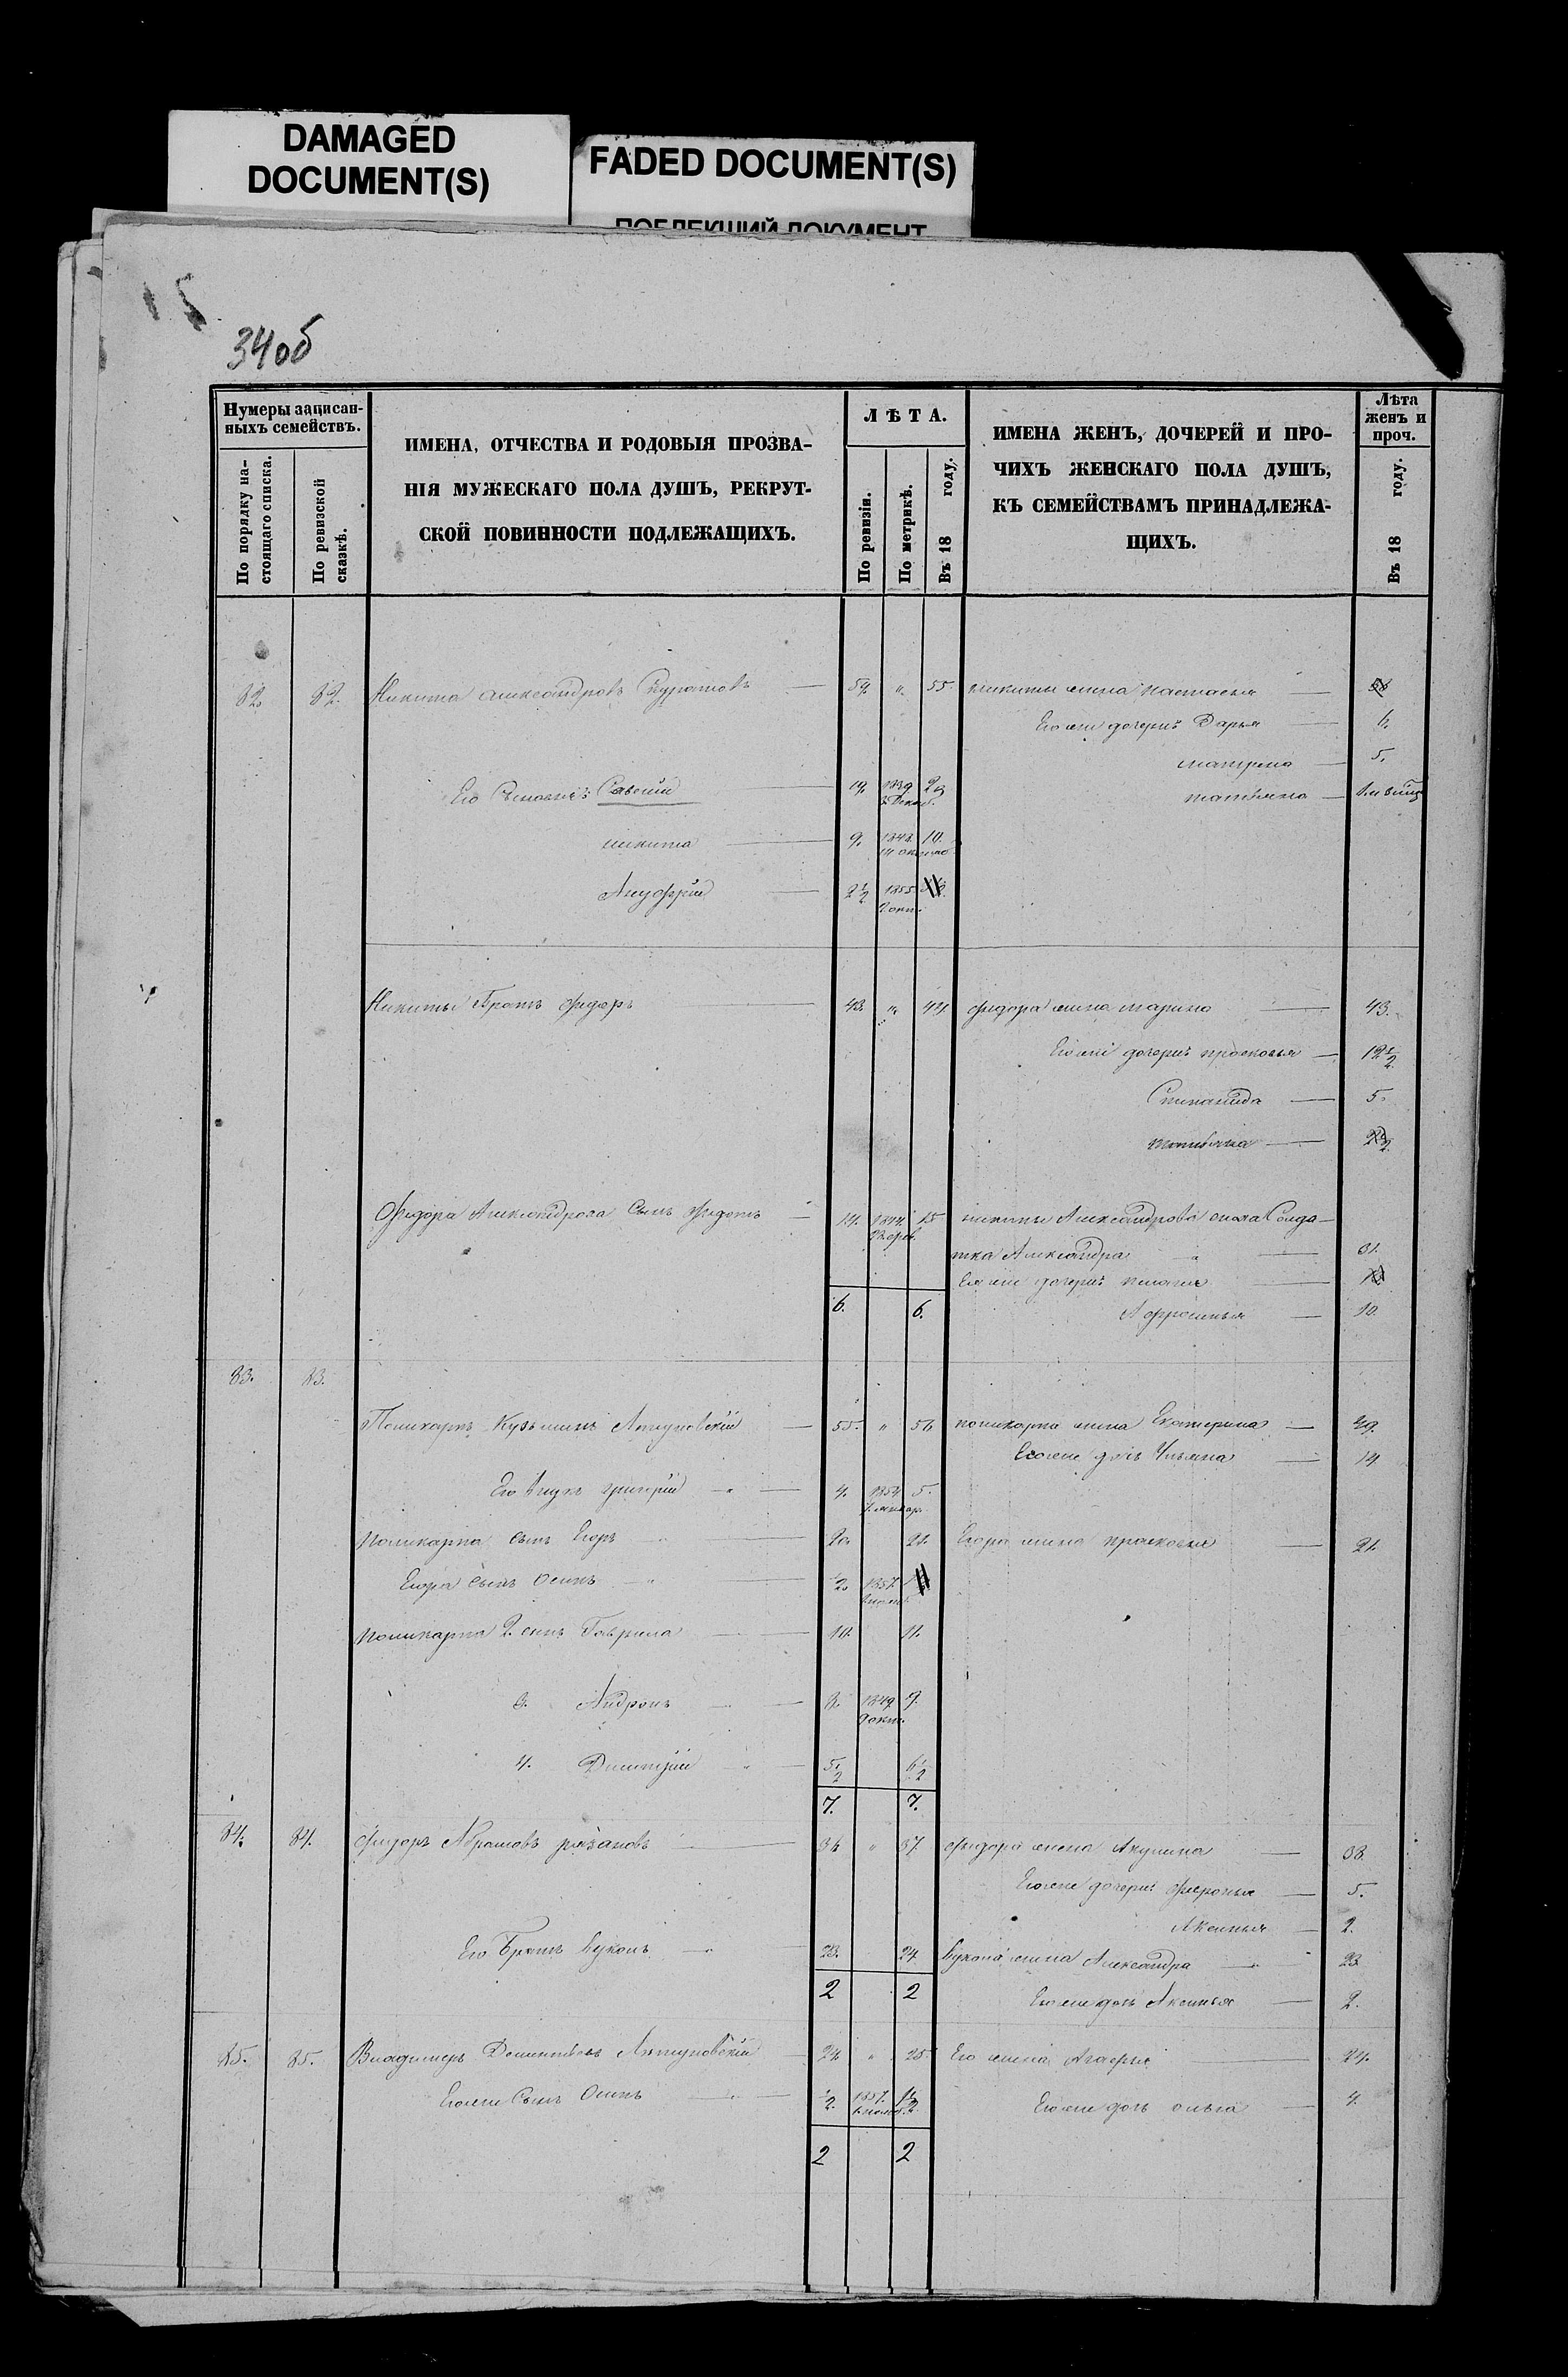 DAMAGED
DOCUMENT(S)
FADED DOCUMENT(S)
ПОБЛЕКШИЙ ДОКУМЕНТ
15
34об
Нумеры записан-
ныхъ семействъ.
По порядку на-
стоящаго списка.
По ревизской
сказкѣ.
ИМЕНА, ОТЧЕСТВА И РОДОВЫЯ ПРОЗВА-
НІЯ МУЖЕСКАГО ПОЛА ДУШЪ, РЕКРУТ-
СКОЙ ПОВИННОСТИ ПОДЛЕЖАЩИХЪ.
ЛѢТА.
По ревизіи.
По метрикѣ.
Въ 18 году.
ИМЕНА ЖЕНЪ, ДОЧЕРЕЙ И ПРО-
ЧИХЪ ЖЕНСКАГО ПОЛА ДУШЪ,
КЪ СЕМЕЙСТВАМЪ ПРИНАДЛЕЖА-
ЩИХЪ.
Лѣта
женъ и
проч.
Въ 18 году.
82. 82. Никита Александровъ 54. " 55. никиты жена настасья
Его же дочери: Дарья 6.
матрена 5.
Его Сыновья: Савелий 19. 1839 20 татьяна
никита 9. 1848. 10.
Ануфрий 2 1/2 1855
2 окт.
Никиты Братъ Фидоръ 43. " 44. Фидора жена марина 43.
Его же дочери прасковья 12 1/2
Стиканида 5.
татьяна
Фидора Александрова Сынъ Фидотъ 14. 1844. 15 никиты Александрова сноха Солда-
тка Александра 31.
Ея же дочери
6. 6. Афросинья 10.
83. 83.
Поликарпъ Кузьминъ 55. " 56 поликарпа жена Екатерина 49.
Его же дочь Ульяна 14
Его Внукъ григорий 4. 1854 5.
поликарпа сынъ Егоръ 20. 21. Егора жена прасковья 21.
Егора сынъ Осипъ 1/2 1857.
поликарпа 2. сынъ Гаврила 10. 11.
3. Андронъ 8. 1849 9.
9 окт.
4. Дмитрий 5 1/2 6 1/2
7. 7.
84. 84. Фидоръ Абрамовъ рязановъ 36 " 37. Фидора жена Акулина 38.
Его же дочери: Фиронья 5.
Аксинья 2.
Его Братъ Луконъ 23. 24. Лукона жена Александра 23
2 2 Его же дочь Аксинья 2.
85. 85. Владимеръ Дементьевъ 24 " 25 Его жена Агафья 24.
Его же Сынъ Осипъ 1/2 1857. 1 1/2 Его же дочь ольга 4.
2 2